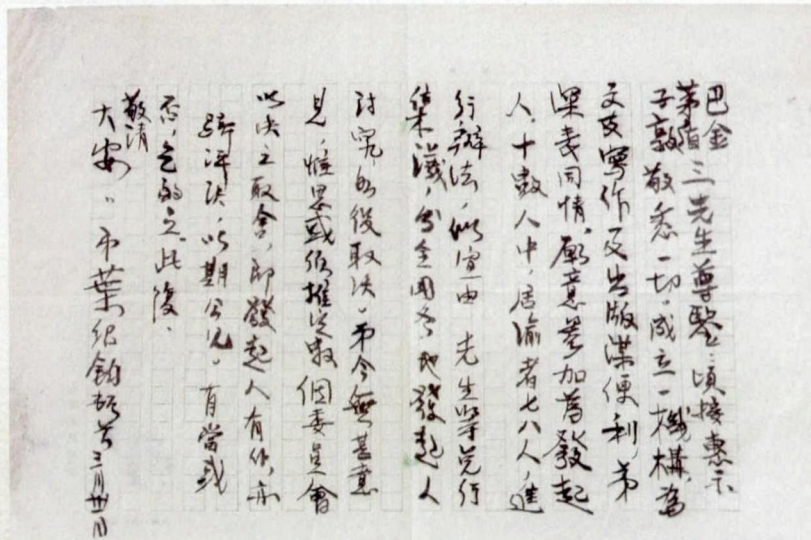 巴金
茅盾 三先生尊鑒：頃接惠示
子敦 敬悉一切。成立一機構，為
文友寫作及出版謀便利，弟
深表同情，願意參加為發起
人，十數人中，居渝者七八人，進
行辦法，似宜由 先生等先行
集議，函全國各地發起人
討究，然後取決。弟今無甚意
見，惟思或須推定數個委員會
以決之取舍，即發起人有作，亦
評決，以期公允。有當或
否，乞酌之。此復，
敬請
大安。 弟葉紹鈞啟 三月廿一日